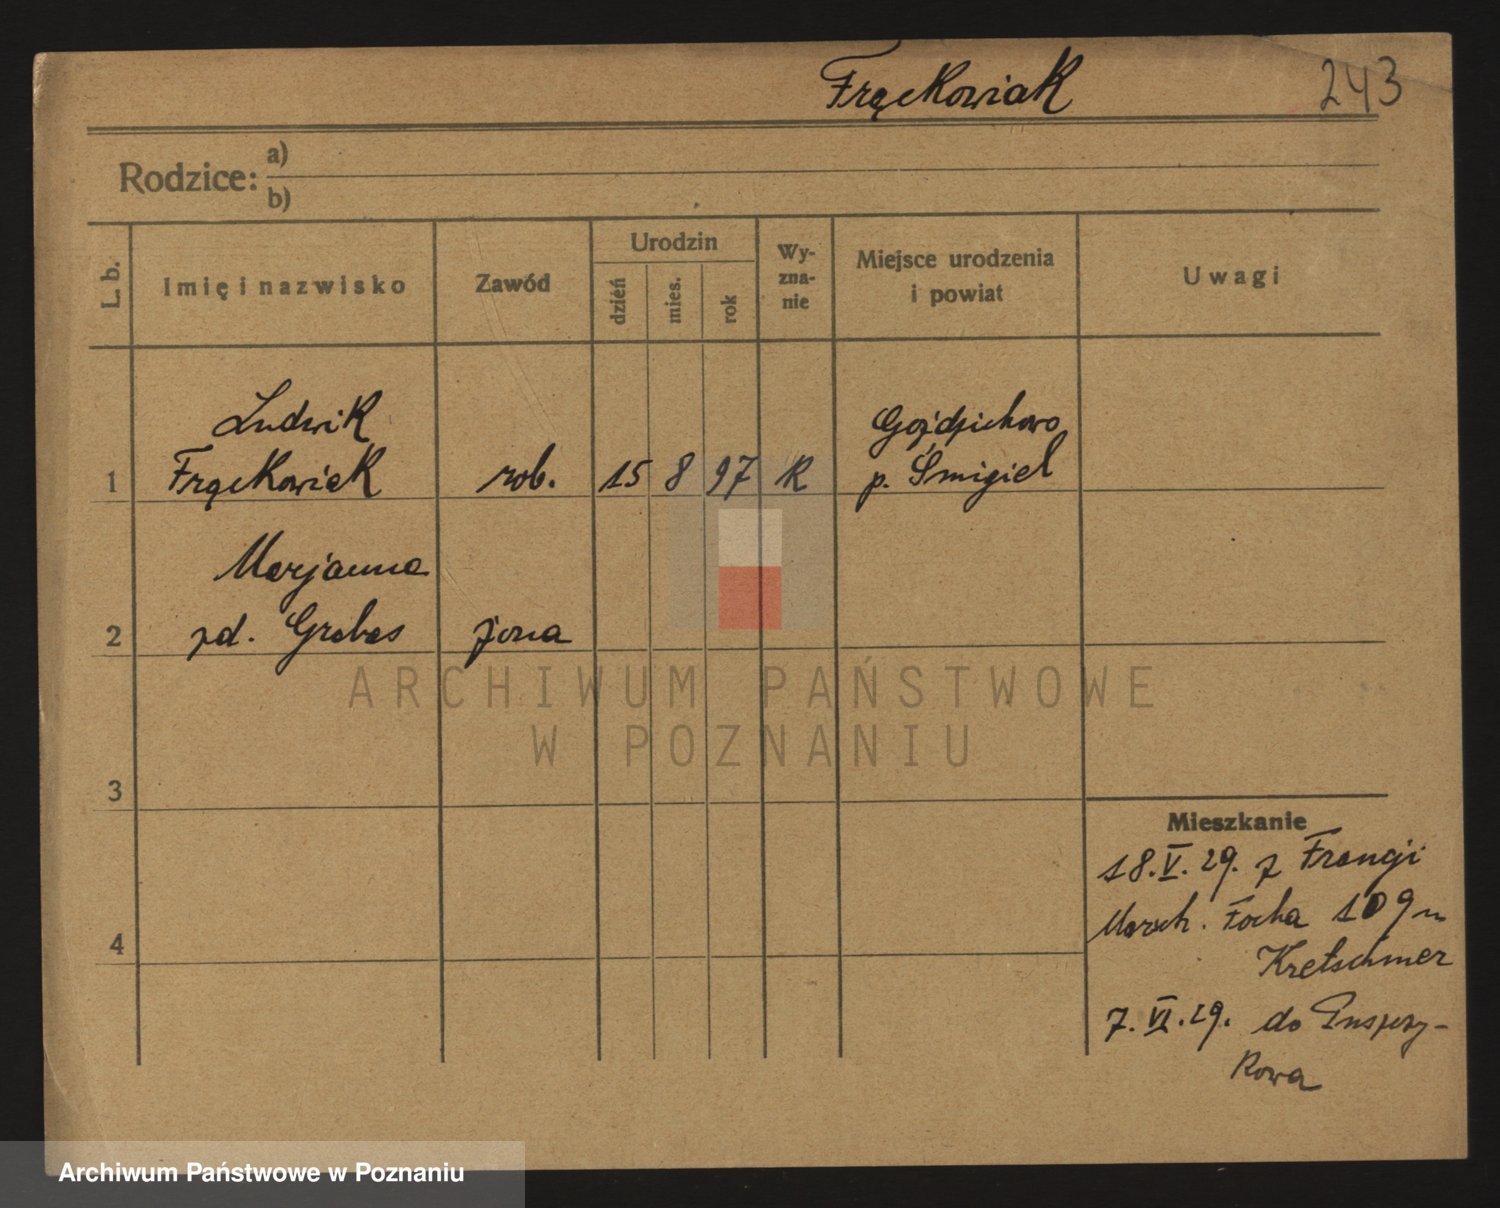 Frąckowiak
243
Rodzice: a)
b)
L. b.
Imię i nazwisko
Zawód
Urodzin
dzień
mies.
rok
Wy-
zna-
nie
Miejsce urodzenia
i powiat
Uwagi
1
Ludwik
Frąckowiak
rob.
15
8
97
K
p. Śmigiel
2
Marjanna
zd. Grabas
żona
3
4
Mieszkanie
18.V.29. z Francji
Marsch. Focha 109 u
Kretschmer
7.VI.29. do
kowa
ARCHIWUM PAŃSTWOWE
W POZNANIU
Archiwum Państwowe w Poznaniu